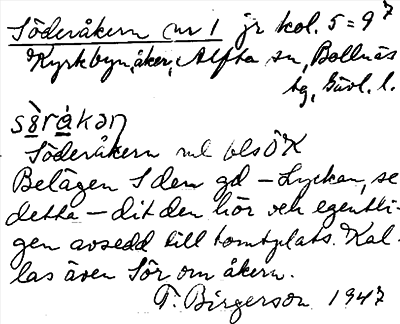 Söderåkern nr 1 jr kol. 5 = 9⁷
Kyrkbyn, åker, Alfta sn, Bollnäs
tg, Gävl. l.
sö̀rákəɳ
Söderåkern ml bls ÖK
Belägen S den gd – Lyckan, se
detta – dit den hör och egentli-
gen avsedd till tomtplats. Kal-
las även Sör om åkern.
T. Birgerson 1947